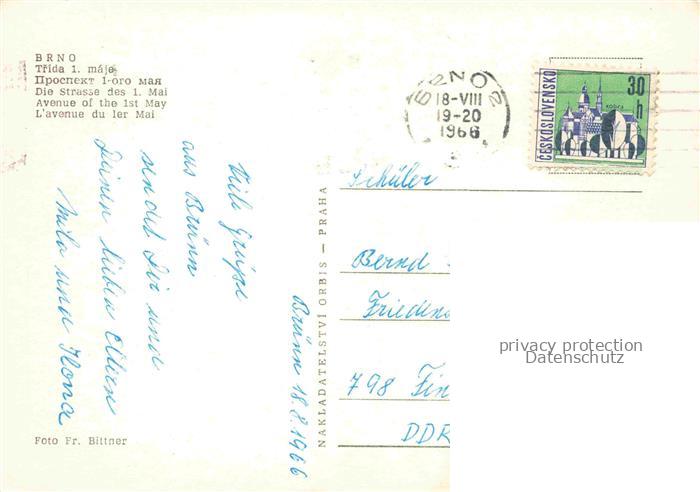 BRNO
Třída 1. máje
Проспект 1-ого мая
Die Strasse des 1. Mai
Avenue of the 1st May
L'avenue du 1er Mai
BRNO 2
18-VIII
19-20
1966
ČESKOSLOVENSKO
30 h
Viele Grüße
aus Brünn
sendet Dir und
Deinen lieben Eltern
Mila und Ilona
Brünn 18.8.1966
NAKLADATELSTVÍ ORBIS — PRAHA
Schüler
Bernd
Friedens
798 Fin
DDR
privacy protection
Datenschutz
Foto Fr. Bittner